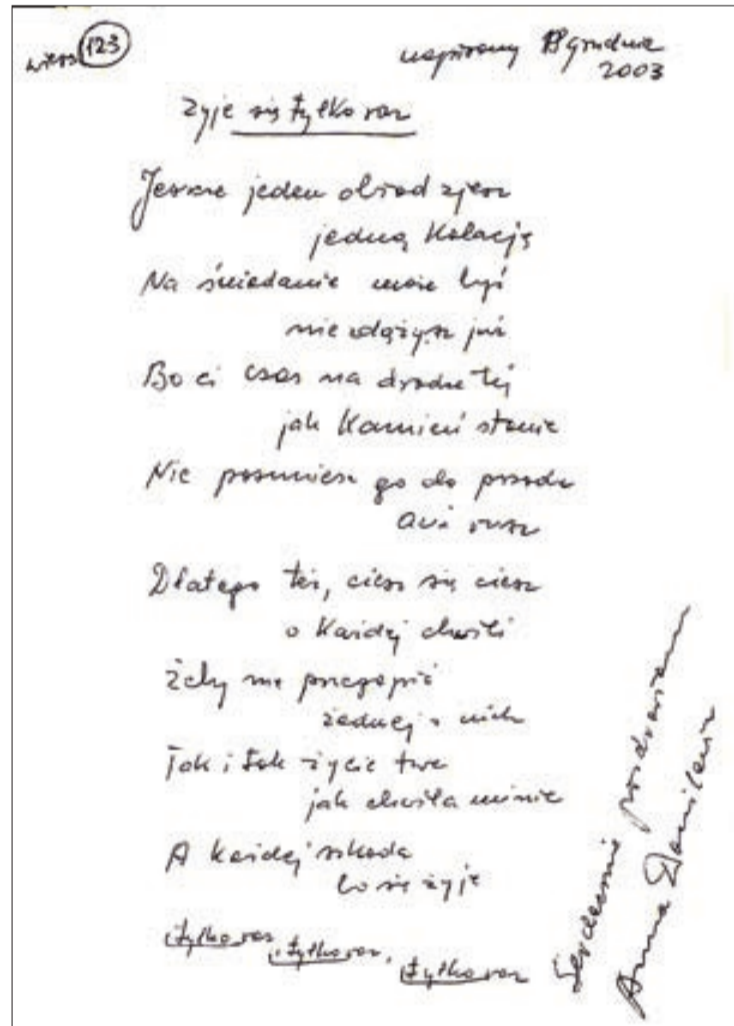 wiersz 123
napisany 18 grudnia
2003
Żyje się tylko raz
Jeszcze jeden obiad zjesz
jedną Kolację
Na śniadanie może być
nie zdążysz już
Bo ci czas na drodze tej
jak Kamień stanie
Nie posuniesz go do przodu
ani rusz
Dlatego też, ciesz się ciesz
o Każdej chwili
Żeby nie przegapić
żadnej z nich
Tak i tak życie twe
jak chwila minie
A każdej szkoda
bo się żyje
tylko raz, tylko raz, tylko raz
Serdecznie pozdrawiam
Anna